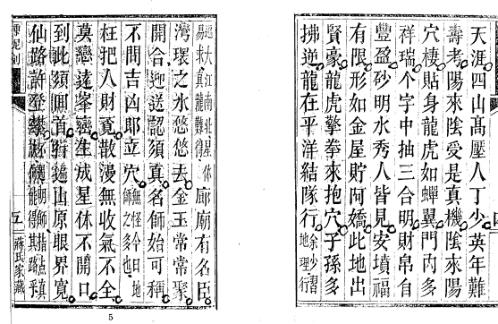 天涯四山高壓人丁少英年難
壽考陽來陰愛是真機陰來陽
穴棲貼身龍虎如蟬翼門內多
祥瑞个字中抽三合明財帛自
豐盈砂明水秀人皆見安墳福
有限形如金屋貯阿嬌此地出
賢豪龍虎擎拳來抱穴子孫多
拂逆龍在平洋結隊行余少習地理
廊廟有名臣
灣環之水悠悠去金玉常常聚
開合迎送認須真名師始可稱
不問吉凶即立穴無怪今日地師之多也
枉把人財費散漫無收氣不全
莫戀遠峯巒生成星体不開口
到此須回首山原眼界寬
仙路許登攀
五
5